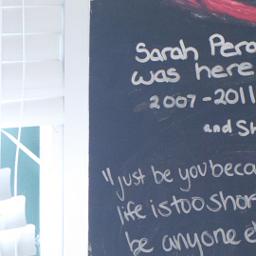 Sarah Pera
was here
2007-2011
and Sh
"just be you beca
life is too shor
be anyone e